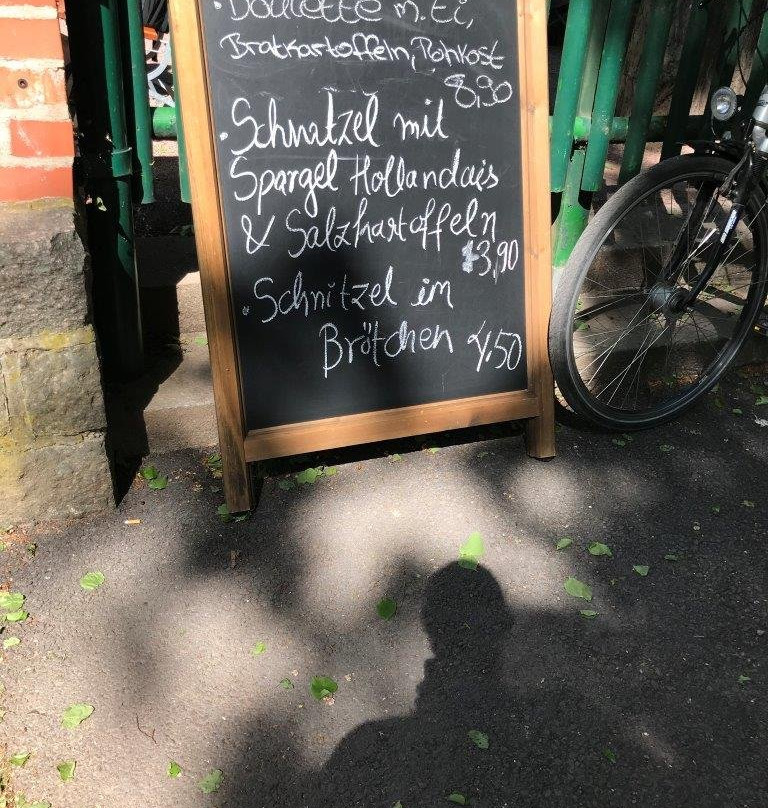 · Boulette m. Ei,
Bratkartoffeln, Rohkost
8,90
· Schnitzel mit
Spargel Hollandais
& Salzkartoffeln
13,90
· Schnitzel im
Brötchen 4,50